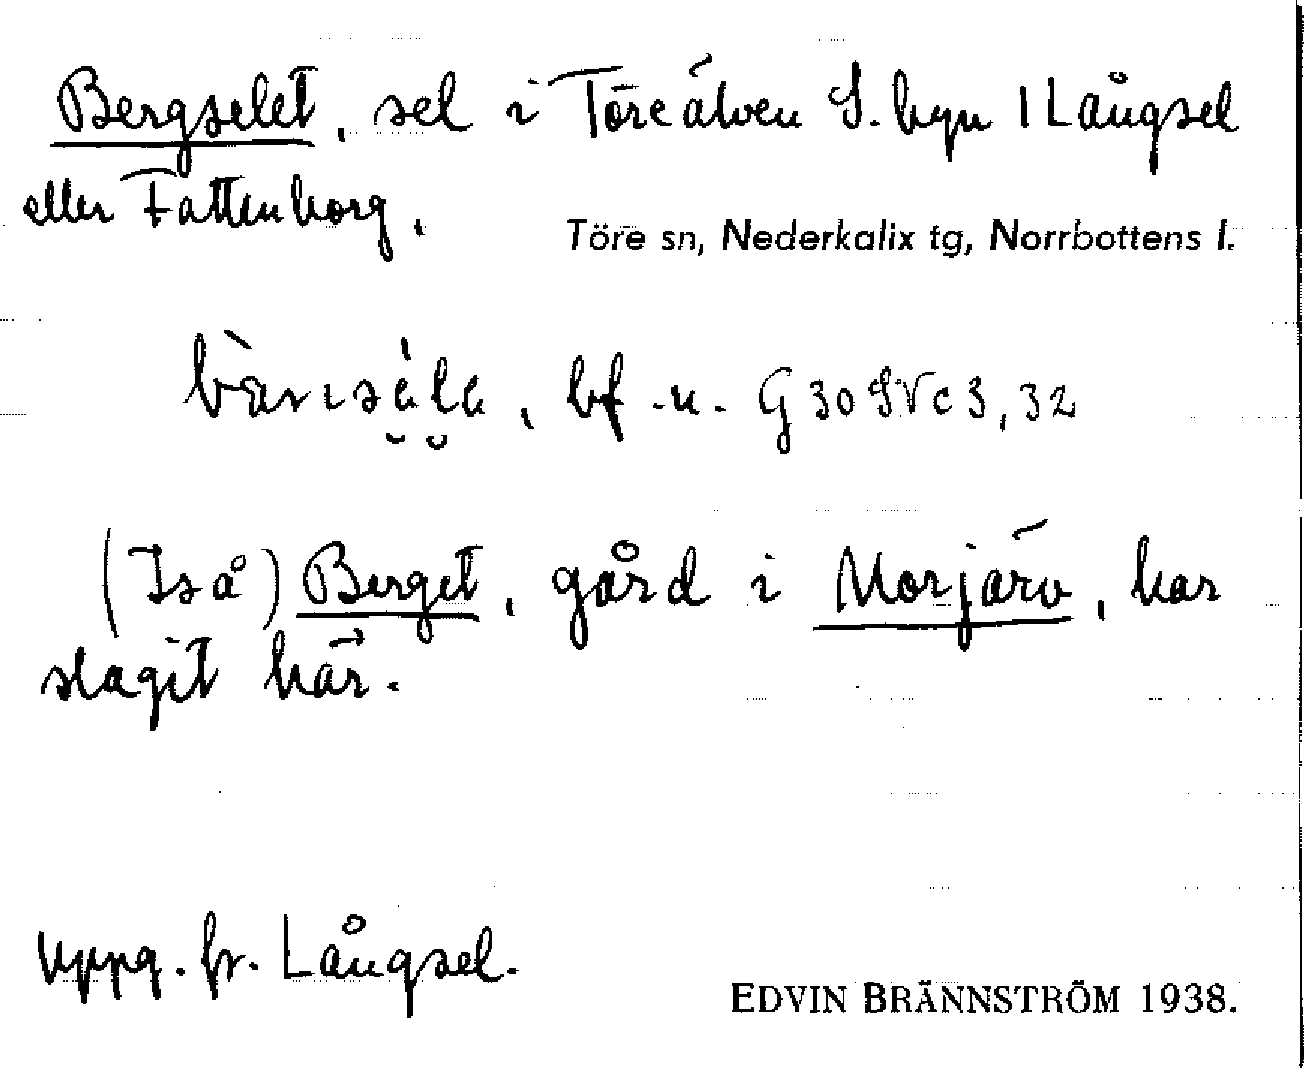 Bergselet, sel i Töreälven S. byn 1 Långsel
eller Fattenborg.
Töre sn, Nederkalix tg, Norrbottens l.
bf. n. G 30 SV c 3, 32
(Iså) Berget, gård i Morjärv, har
slagit här.
Uppg. fr. Långsel.
EDVIN BRÄNNSTRÖM 1938.